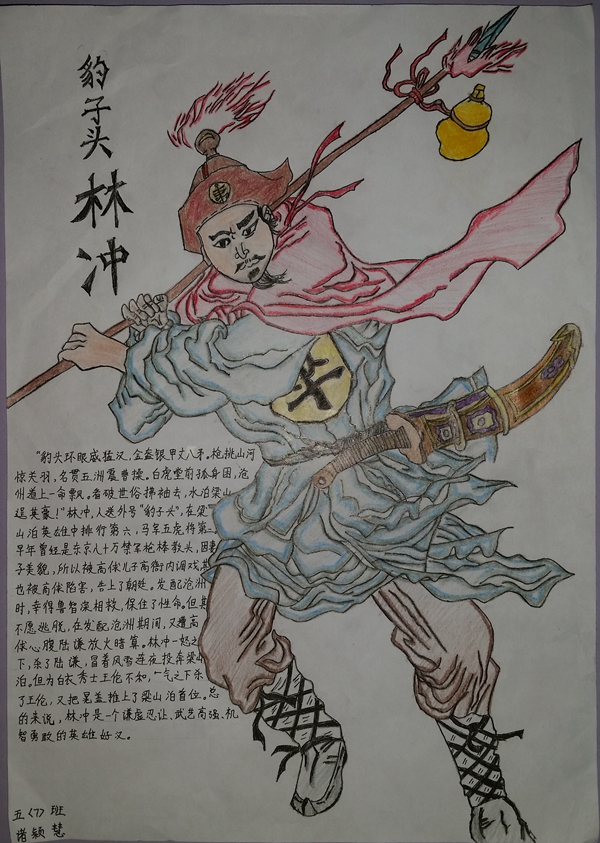 豹子头
林冲
"豹头环眼威猛汉，金盔银甲丈八矛。枪挑山河
惊关羽，名贯五洲震曹操。白虎堂前孤身困，沧
州道上一命飘。看破世俗拂袖去，水泊梁山
逞英豪！"林冲，人送外号"豹子头"，在梁
山泊英雄中排行第六，马军五虎将第二
早年曾经是东京八十万禁军枪棒教头，因妻
子美貌，所以被高俅儿子高衙内调戏，其
也被高俅陷害，告上了朝廷。发配沧洲
时，幸得鲁智深相救，保住了性命。但其
不愿逃脱，在发配沧洲期间，又遭高
俅心腹陆谦放火暗算。林冲一怒之
下，杀了陆谦，冒着风雪连夜投奔梁山
泊。但为白衣秀士王伦不和，一气之下杀
了王伦，又把晁盖推上了梁山泊首位。总
的来说，林冲是一个谦虚忍让、武艺高强、机
智勇敢的英雄好汉。
五〈7〉班
诸颖慧